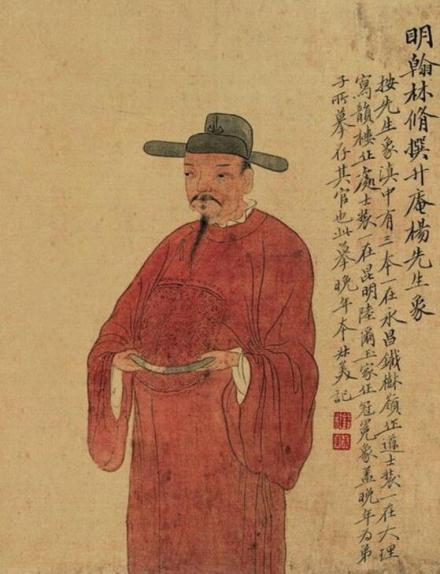 明翰林脩撰升庵楊先生象
按先生象滇中有三本一在永昌鐵樹嶺止道士裝一在大理
寫韻樓止處士裝一在昆明陸爾玉家止冠冕象蓋晚年為弟
子所摹存其官也此摹晚年本 美記